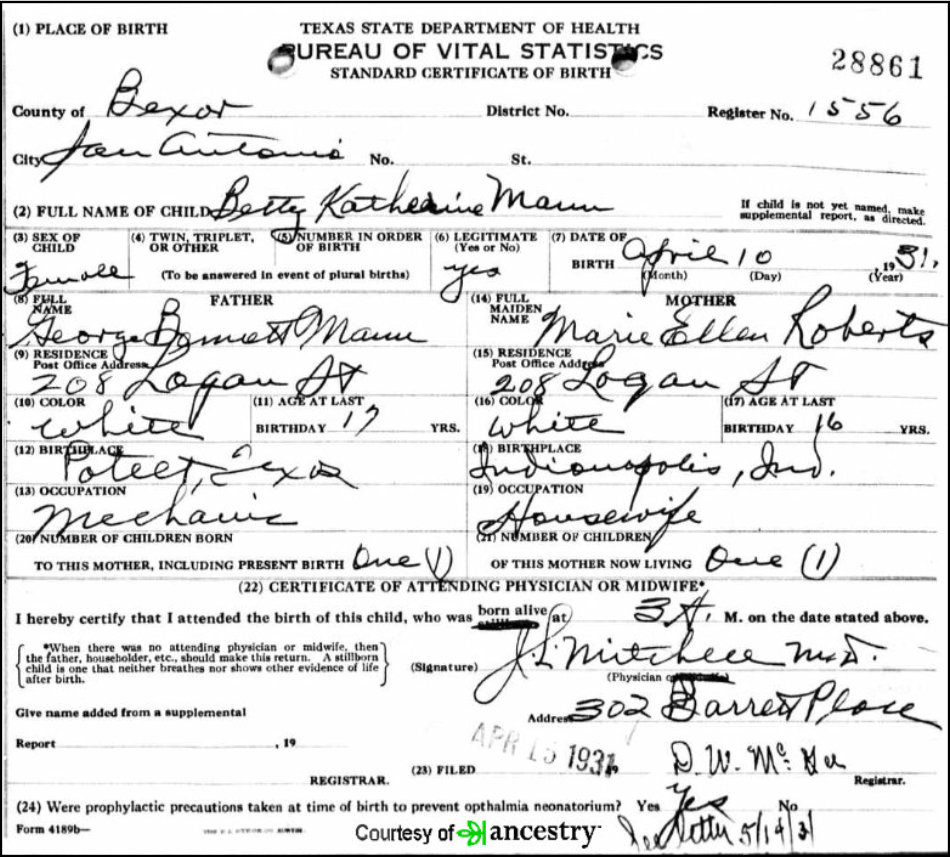 (1) PLACE OF BIRTH
TEXAS STATE DEPARTMENT OF HEALTH
BUREAU OF VITAL STATISTICS
STANDARD CERTIFICATE OF BIRTH
28861
County of Bexar District No. Register No. 1556
City San Antonio No. St.
(2) FULL NAME OF CHILD Betty Katherine Mann
If child is not yet named, make
supplemental report, as directed.
(3) SEX OF CHILD Female
(4) TWIN, TRIPLET, OR OTHER
(5) NUMBER IN ORDER OF BIRTH
(To be answered in event of plural births)
(6) LEGITIMATE (Yes or No) yes
(7) DATE OF BIRTH April 10 1931.
(Month) (Day) (Year)
FATHER
(8) FULL NAME
George Bennett Mann
MOTHER
(14) FULL MAIDEN NAME
Marie Ellen Roberts
(9) RESIDENCE
Post Office Address
208 Logan St
(15) RESIDENCE
Post Office Address
208 Logan St
(10) COLOR White
(11) AGE AT LAST BIRTHDAY 17 YRS.
(16) COLOR White
(17) AGE AT LAST BIRTHDAY 16 YRS.
(12) BIRTHPLACE
Poteet, Texas
(18) BIRTHPLACE
Indianapolis, Ind.
(13) OCCUPATION
Mechanic
(19) OCCUPATION
Housewife
(20) NUMBER OF CHILDREN BORN
TO THIS MOTHER, INCLUDING PRESENT BIRTH One (1)
(21) NUMBER OF CHILDREN
OF THIS MOTHER NOW LIVING One (1)
(22) CERTIFICATE OF ATTENDING PHYSICIAN OR MIDWIFE*
I hereby certify that I attended the birth of this child, who was born alive at 3 A. M. on the date stated above.
*When there was no attending physician or midwife, then
the father, householder, etc., should make this return. A stillborn
child is one that neither breathes nor shows other evidence of life
after birth.
(Signature) J. L. Mitchell M.D.
(Physician
Give name added from a supplemental
Address 302 Barrett Place
Report , 19
APR 15 1931
(23) FILED D. W. McGee
REGISTRAR.
Registrar.
(24) Were prophylactic precautions taken at time of birth to prevent opthalmia neonatorium? Yes Yes No
Form 4189b—
See letter 5/14/31
Courtesy of ancestry